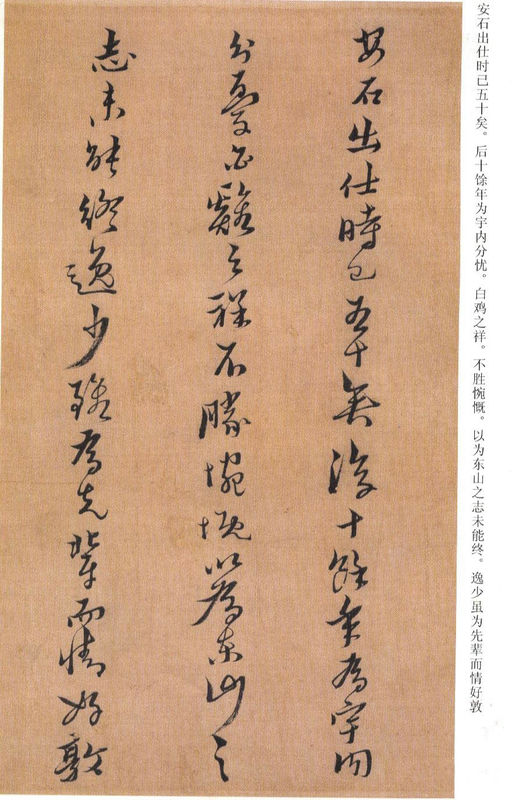 安石出仕时已五十矣。后十馀年为宇内分忧。白鸡之祥。不胜惋慨。以为东山之志未能终。逸少虽为先辈而情好敦
安石出仕時已五十矣後十餘年為宇内
分憂白雞之祥不勝惋慨以為東山之
志未能終逸少雖為先輩而情好敦